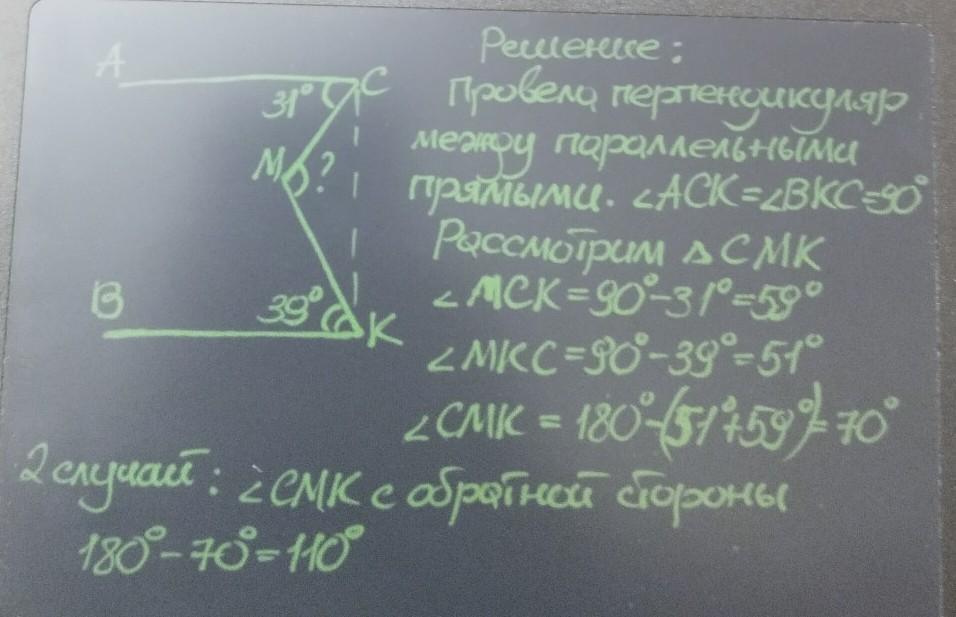 Решение:
A
C
31°
Провела перпендикуляр
между параллельными
M
?
прямыми. ∠ACK=∠BKC=90°
Рассмотрим △CMK
B
39°
K
∠MCK=90°-31°=59°
∠MKC=90°-39°=51°
∠CMK=180°-(51°+59°)=70°
2 случай: ∠CMK с обратной стороны
180°-70°=110°